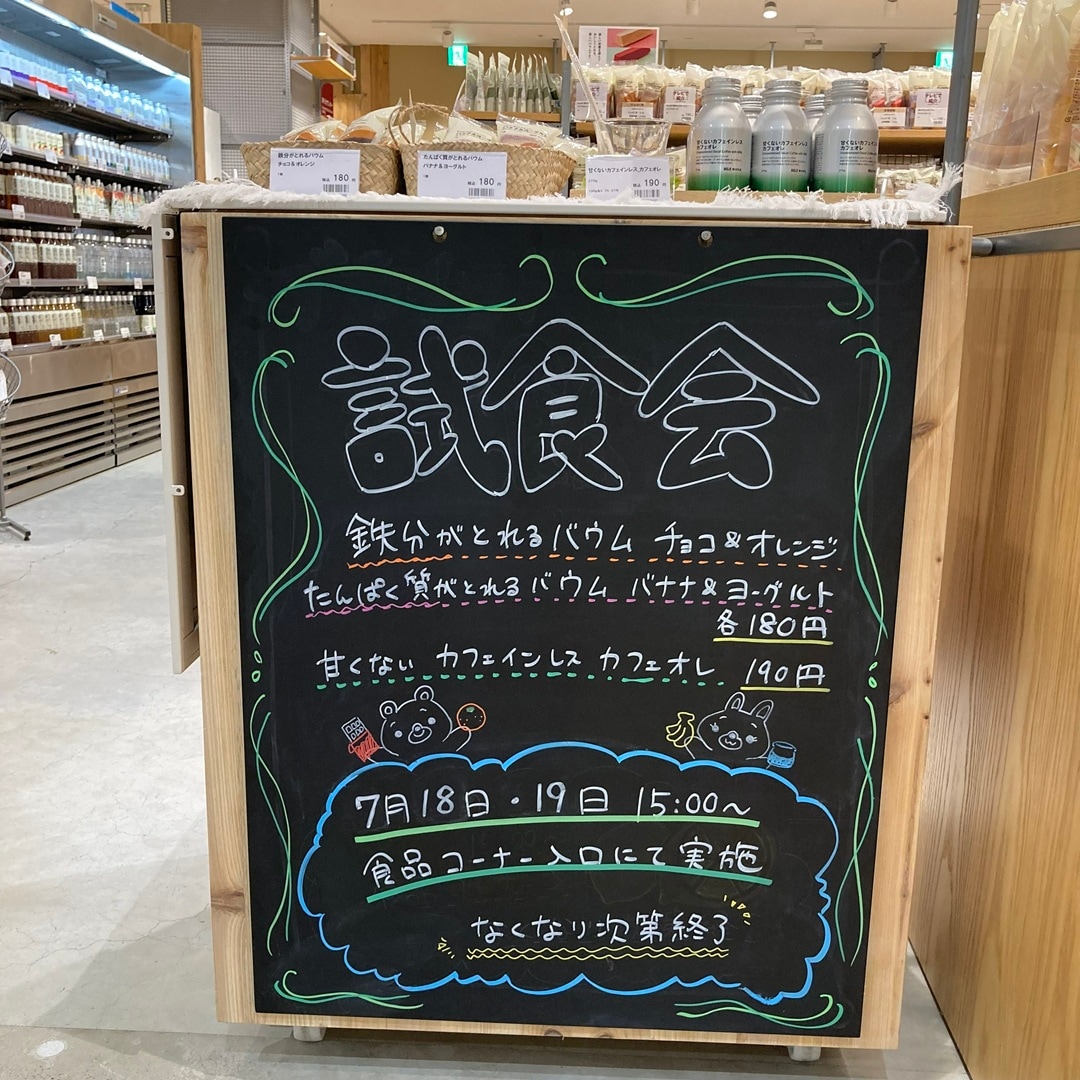 鉄分がとれるバウム
チョコ&オレンジ
税込 180円
たんぱく質がとれるバウム
バナナ&ヨーグルト
税込 180円
甘くないカフェインレス カフェオレ
税込 190円
甘くないカフェインレス
カフェオレ
甘くないカフェインレス
カフェオレ
試食会
鉄分がとれるバウム チョコ&オレンジ
たんぱく質がとれるバウム バナナ&ヨーグルト
各180円
甘くない カフェインレス カフェオレ 190円
7月18日・19日 15:00〜
食品コーナー入口にて実施
なくなり次第終了